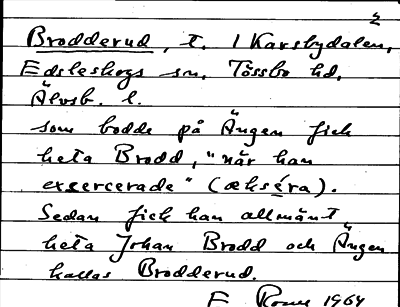 2
Brodderud, t. i Karsbydalen,
Edsleskogs sn, Tössbo hd,
Älvsb. l.
som bodde på Ängen fick
heta Brodd, "när han
exercerade" (æksе́ra).
Sedan fick han allmänt
heta Johan Brodd och Ängen
kallas Brodderud.
F 1964